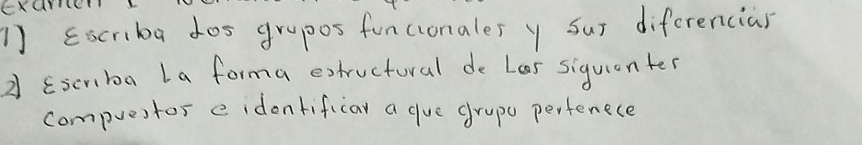 Examen I
1) Escriba dos grupos funcionales y sus diferencias
2) Escriba La forma estructural de Los siguientes
compuestos e identificar a que grupo pertenece